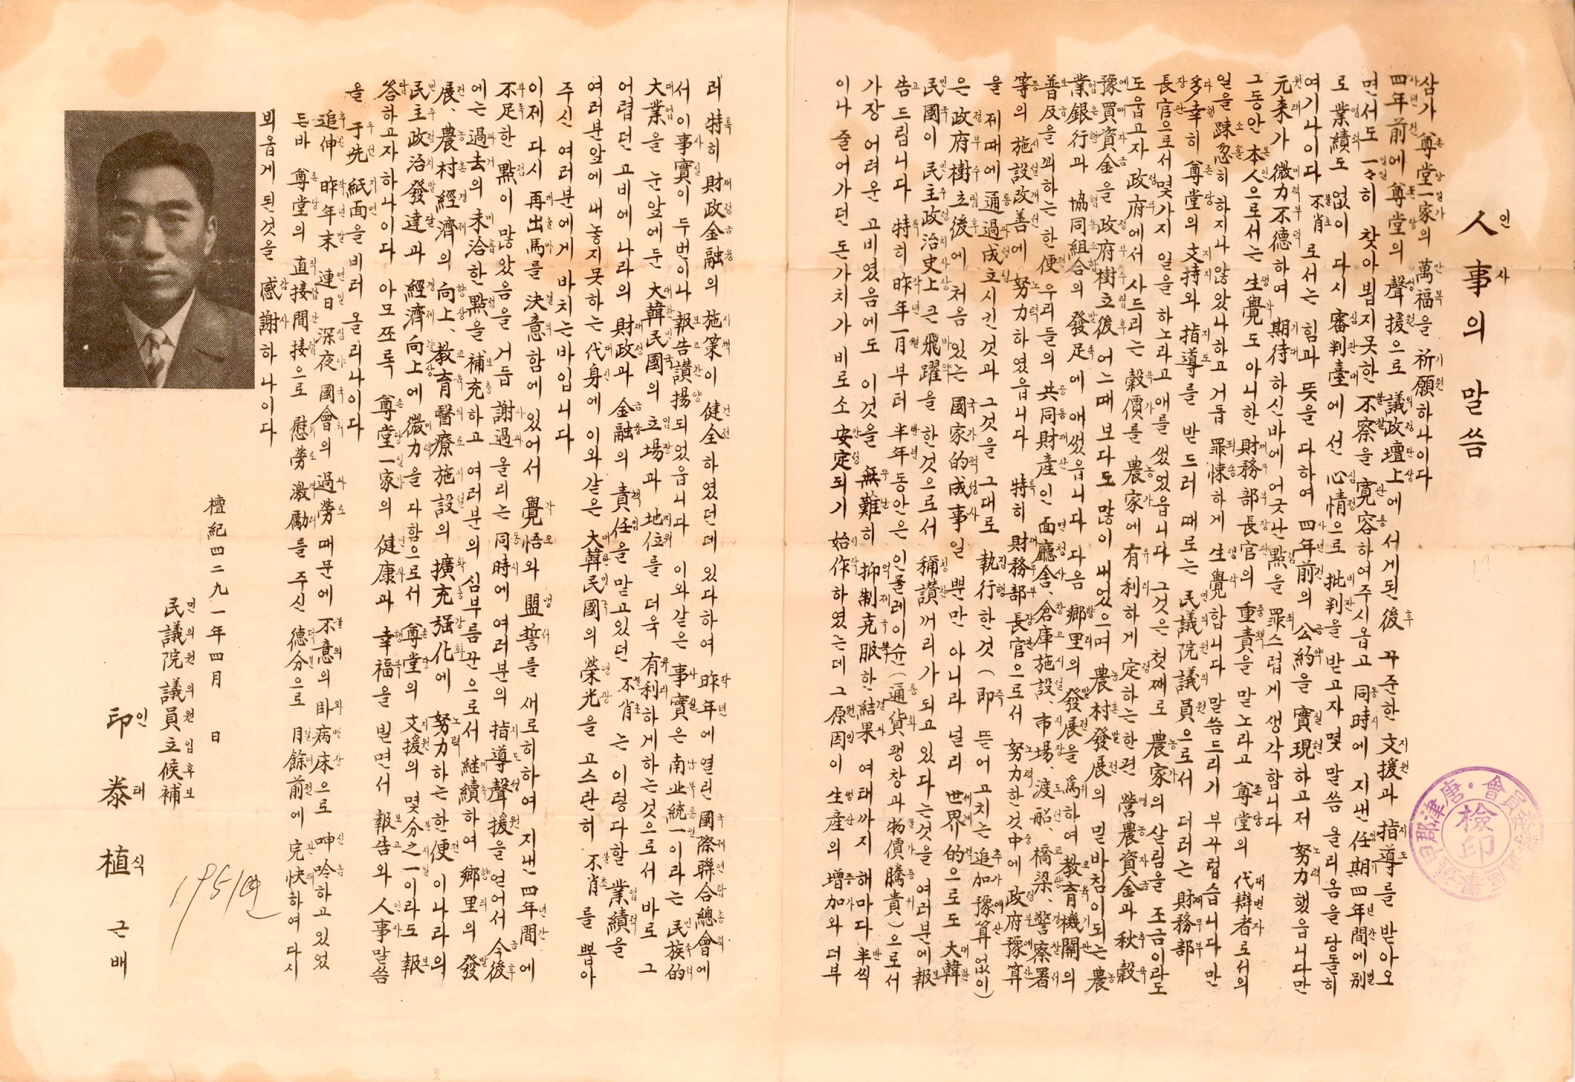 人事의 말씀
삼가 尊堂一家의 萬福을 祈願하나이다
四年前에 尊堂의 聲援으로 議政壇上에 서게된 後 꾸준한 支援과 指導를 받아오
면서도 一々히 찾아뵙지못한 不察을 寬容하여주시옵고 同時에 지낸 任期四年間에 別
로 業績도 없이 다시 審判臺에 선 心情으로 批判을 받고자 몇 말씀 올리옴을 당돌히
여기나이다 不肖로서는 힘과 뜻을 다하여 四年前의 公約을 實現하고저 努力했읍니다만
元來가 微力不德하여 期待하신바에 어긋난 點을 罪스럽게 생각합니다
그동안 本人으로서는 生覺도 아니한 財務部長官의 重責을 말노라고 尊堂의 代辯者로서의
일을 踈忽히 하지나 않았나하고 거듭 罪悚하게 生覺합니다 말씀드리기 부끄럽습니다만
多幸히 尊堂의 支持와 指導를 받드러 때로는 民議院議員으로서 더러는 財務部
長官으로서 몇가지 일을 하노라고 애를 썼었읍니다 그것은 첫째로 農家의 살림을 조금이라도
도웁고자 政府에서 사드리는 穀價를 農家에 有利하게 定하는한편 營農資金과 秋穀
豫買資金을 政府樹立後 어느때 보다도 많이 내었으며 農村發展의 밑바침이되는 農
業銀行과 協同組合의 發足에 애썼읍니다 다음 鄕里의 發展을 爲하여 敎育機關의
普及을 꾀하는 한便 우리들의 共同財産인 面廳舍、倉庫施設、市場、渡船、橋梁、警察署
等의 施設改善에 努力하였읍니다 特히 財務部長官으로서 努力한것中에 政府豫算
을 제때에 通過成立시킨것과 그것을 그대로 執行한것(即 뜯어고치는 追加豫算없이)
은 政府樹立後에 처음 있는 國家的成事일 뿐만 아니라 널리 世界的으로도 大韓
民國이 民主政治史上 큰 飛躍을 한것으로서 稱讚꺼리가 되고 있다는것을 여러분에 報
告드립니다 特히 昨年一月부터 半年동안은 인플레이슌(通貨팽창과 物價騰貴)으로서
가장 어려운 고비였음에도 이것을 無難히 抑制克服한 結果 여태까지 해마다 半씩
이나 줄어가던 돈가치가 비로소 安定되기 始作하였는데 그 原因이 生産의 增加와 더부
러 特히 財政金融의 施策이 健全하였던데 있다하여 昨年에 열린 國際聯合總會에
서 이事實이 두번이나 報告讚揚되었읍니다 이와같은 事實은 南北統一이라는 民族的
大業을 눈앞에둔 大韓民國의 立場과 地位를 더욱 有利하게하는것으로서 바로 그
어렵던 고비에 나라의 財政과 金融의 責任을 말고있던 不肖는 이렇다할 業績을
여러분앞에 내놓지못하는 代身에 이와같은 大韓民國의 榮光을 고스란히 不肖를 뽑아
주신 여러분에게 바치는바입니다
이제 다시 再出馬를 決意함에 있어서 覺悟와 盟誓를 새로히하여 지낸 四年間에
不足한 點이 많았음을 거듭 謝過 올리는 同時에 여러분의 指導聲援을 얻어서 今後
에는 過去의 未洽한 點을 補充하고 여러분의 심부름꾼으로서 継續하여 鄕里의 發
展、農村經濟의 向上、敎育醫療施設의 擴充强化에 努力하는 한便 이나라의
民主政治發達과 經濟向上에 微力을 다함으로서 尊堂의 支援의 몇分之一이라도 報
答하고자 하나이다 아모쪼록 尊堂一家의 健康과 幸福을 빌면서 報告와 人事말씀
을 于先 紙面을 비러 올리나이다
追伸 昨年末 連日 深夜 國會의 過勞 때문에 不意의 臥病床으로 呻吟하고 있었
든바 尊堂의 直接間接으로 慰勞 激勵를 주신 德分으로 月餘前에 完快하여 다시
뵈옵게 된것을 感謝하나이다
檀紀四二九一年四月 日
民議院議員立候補
印泰植 근배
檢印